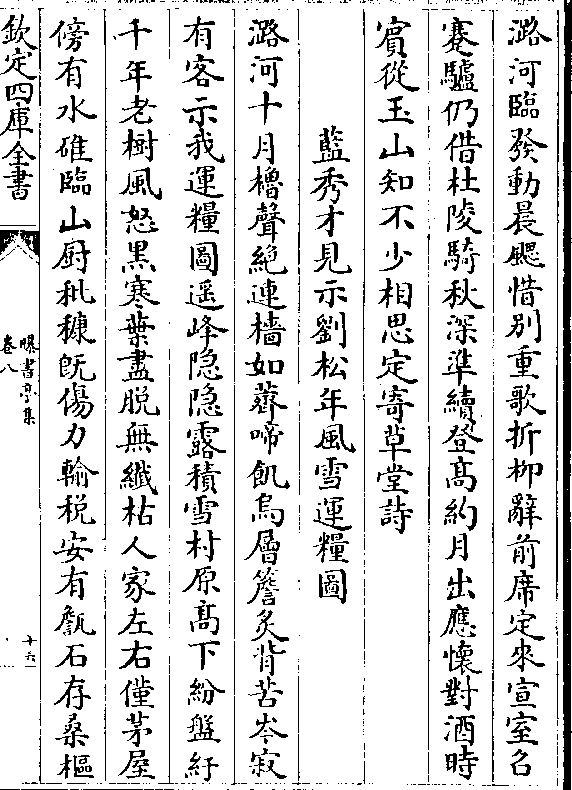 潞河臨發動晨颸惜别重歌折柳辭前席定來宣室名
蹇驢仍借杜陵騎秋深準續登髙約月出應懷對酒時
賔從玉山知不少相思定寄草堂詩
藍秀才見示劉松年風雪運糧圖
潞河十月櫓聲絶連檣如薺啼飢烏層簷炙背苦岑寂
有客示我運糧圖遥峰隐隐露積雪村原髙下紛盤紆
千年老樹風怒黒寒葉盡脱無纖枯人家左右僅茅屋
傍有水碓臨山厨秕穅旣傷力輸税安有甔石存桑樞
欽定四庫全書
曝書亭集
卷八
十六